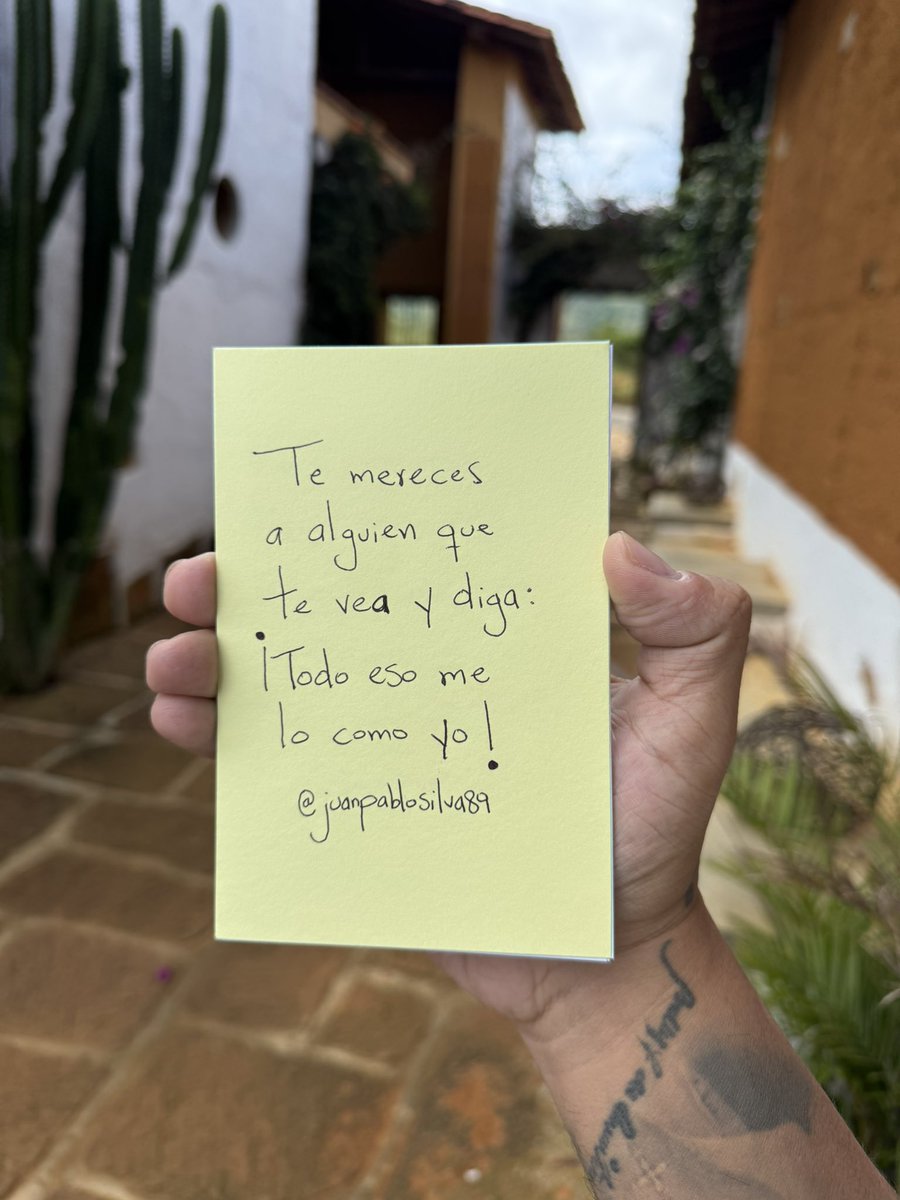 Te mereces
a alguien que
te vea y diga:
¡Todo eso me
lo como yo!
@juanpablosilva89